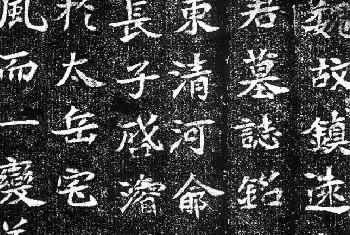 魏故鎮遠
君墓誌銘
東清河俞
長子
於太岳宅
風而一變